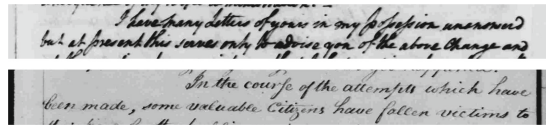 I have many Letters of yours in my possession unanswerd
but at present this serves only to advise you of the above Change and
In the course of the attempts which have
been made, some valuable Citizens have fallen victims to